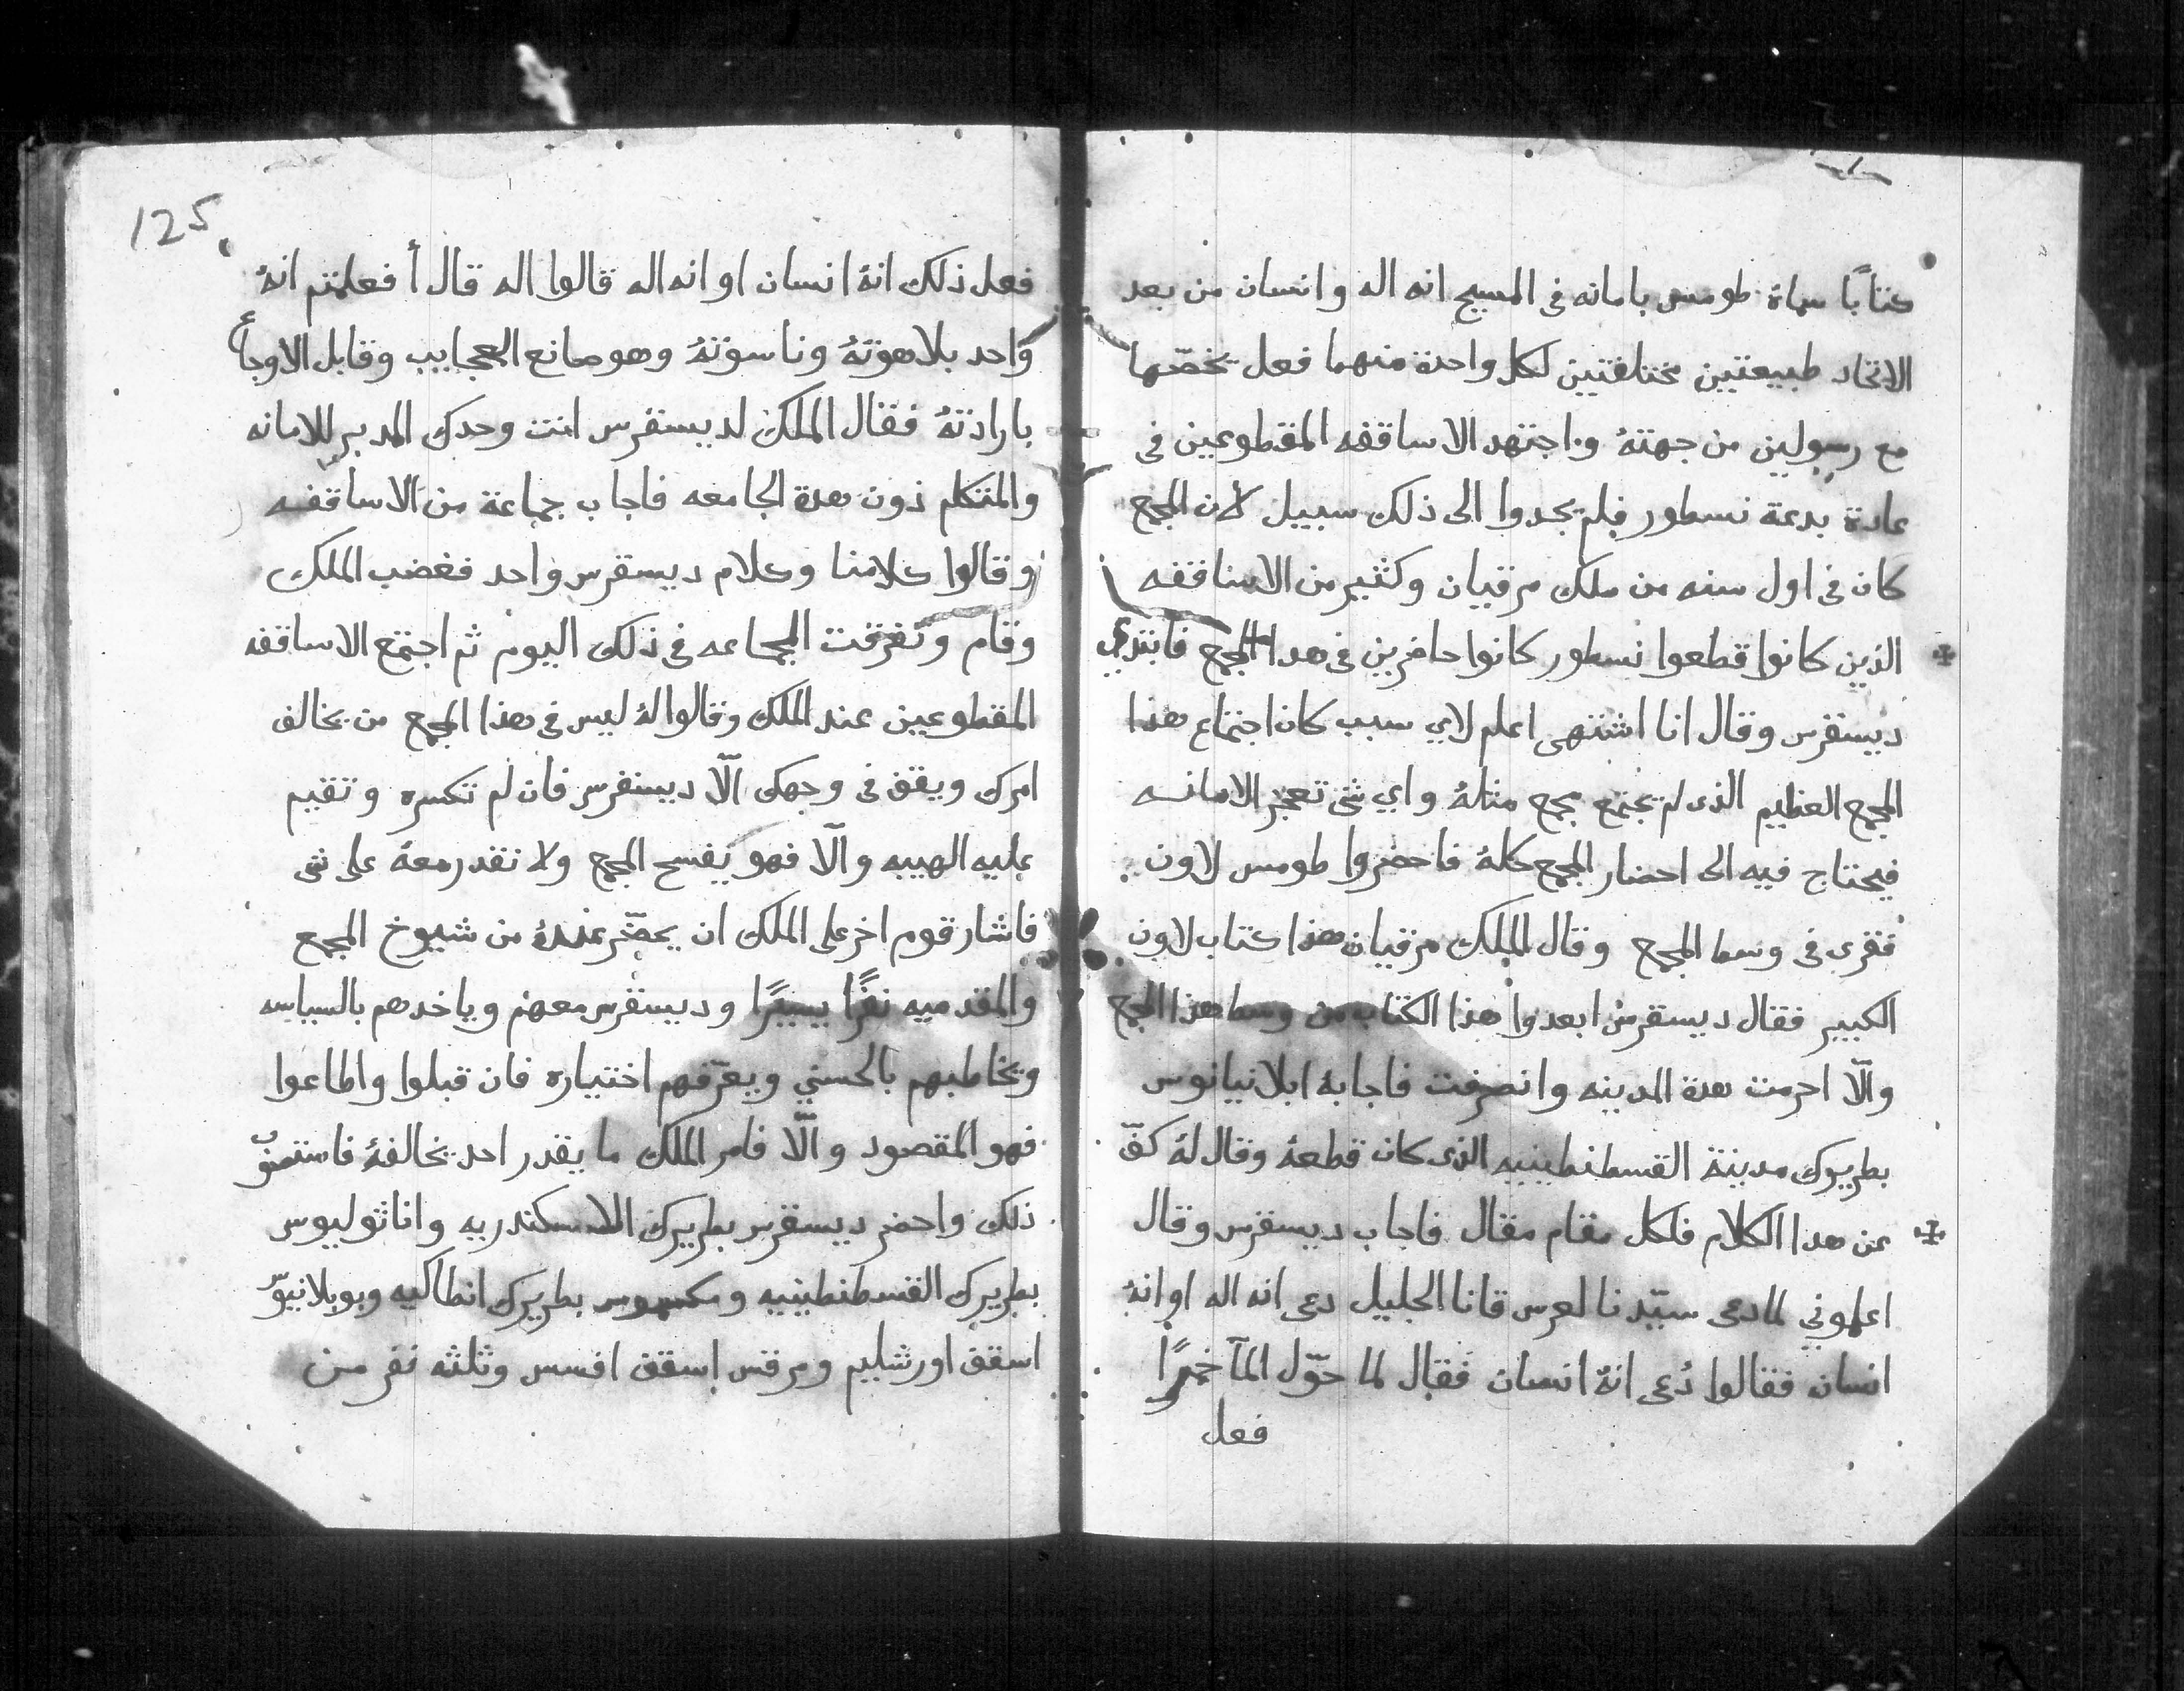 كتابًا سماهٔ طومس بامانه فى المسيح انه اله وانسان من بعد
الاتحاد طبيعتين مختلفتين لكل واحدة منهما فعل يخصّها
مع رسولين من جهتهُ واجتهد الاساقفه المقطوعين فى
عادة بدعة نسطور فلم يجدوا الى ذلك سبيل لان المجمع
كان فى اول سنه من ملك مرقيان وكثير من الاساقفه
الذين كانوا قطعوا نسطور كانوا حاضرين فى هدا المجمع فابتدي
ديسقرس وقال انا اشتهى اعلم لاي سبب كان اجتماع هذا
المجمع العظيم الذى لم يجتمع مجمع مثلهُ واي شى تعجز الامانه
فيحتاج فيه الى احضار المجمع كلهُ فاحضروا طومس لاون
فقرى فى وسط المجمع وقال الملك مرقيان هذا كتاب لاون
الكبير فقال ديسقرس ابعدوا هذا الكتاب من وسط هذا المجمع
والّا احرمت هدة المدينه وانصرفت فاجابهُ ابلانيانوس
بطريرك مدينة القسطنطينيه الذى كان قطعهُ وقال لهُ كفّ
عن هدا الكلام فلكل مقام مقال فاجاب ديسقرس وقال
اعلموني لما دعى سيّدنا لعرس قانا الجليل دعى انه اله او انهُ
انسان فقالوا دُعى انهُ انسان فقال لما حوّل المآ خمرًا
فعل
125
فعل ذلك انهُ انسان او انه اله قالوا اله قال أفعلمتم انهُ
واحد بلاهوتهُ وناسوتهُ وهو صانع العجايب وقابل الاوجاع
بارادتهُ فقال الملك لديسقرس انت وحدك المدبر للامانه
والمتكلم دون هدة الجامعه فاجاب جماعة من الاساقفه
وقالوا كلامنا وكلام ديسقرس واحد فغضب الملك
وقام وتفرقت الجماعه فى ذلك اليوم ثم اجتمع الاساقفه
المقطوعين عند الملك وقالوا لهُ ليس فى هذا المجمع من يخالف
امرك ويقف فى وجهك الّا ديسقرس فان لم تكسره وتقيم
عليه الهيبه والّا فهو يفسح المجمع ولا نقدر معهُ على شى
فاشار قوم اخر على الملك ان يحضّر عندهُ من شيوخ المجمع
والمقدميه نفرًا يسيرًا وديسقرس معهم وياخدهم بالسياسه
ويخاطبهم بالحسني ويعرّفهم اختياره فان قبلوا واطاعوا
فهو المقصود والّا فامر الملك ما يقدر احد يخالفهُ فاستصوب
ذلك واحضر ديسقرس بطريرك الاسكندريه واناثوليوس
بطريرك القسطنطينيه ومكسموس بطريرك انطاكيه وبوبلانيوّ
اسقف اورشليم ومرقس اسقف افسس وثلثه نفر من